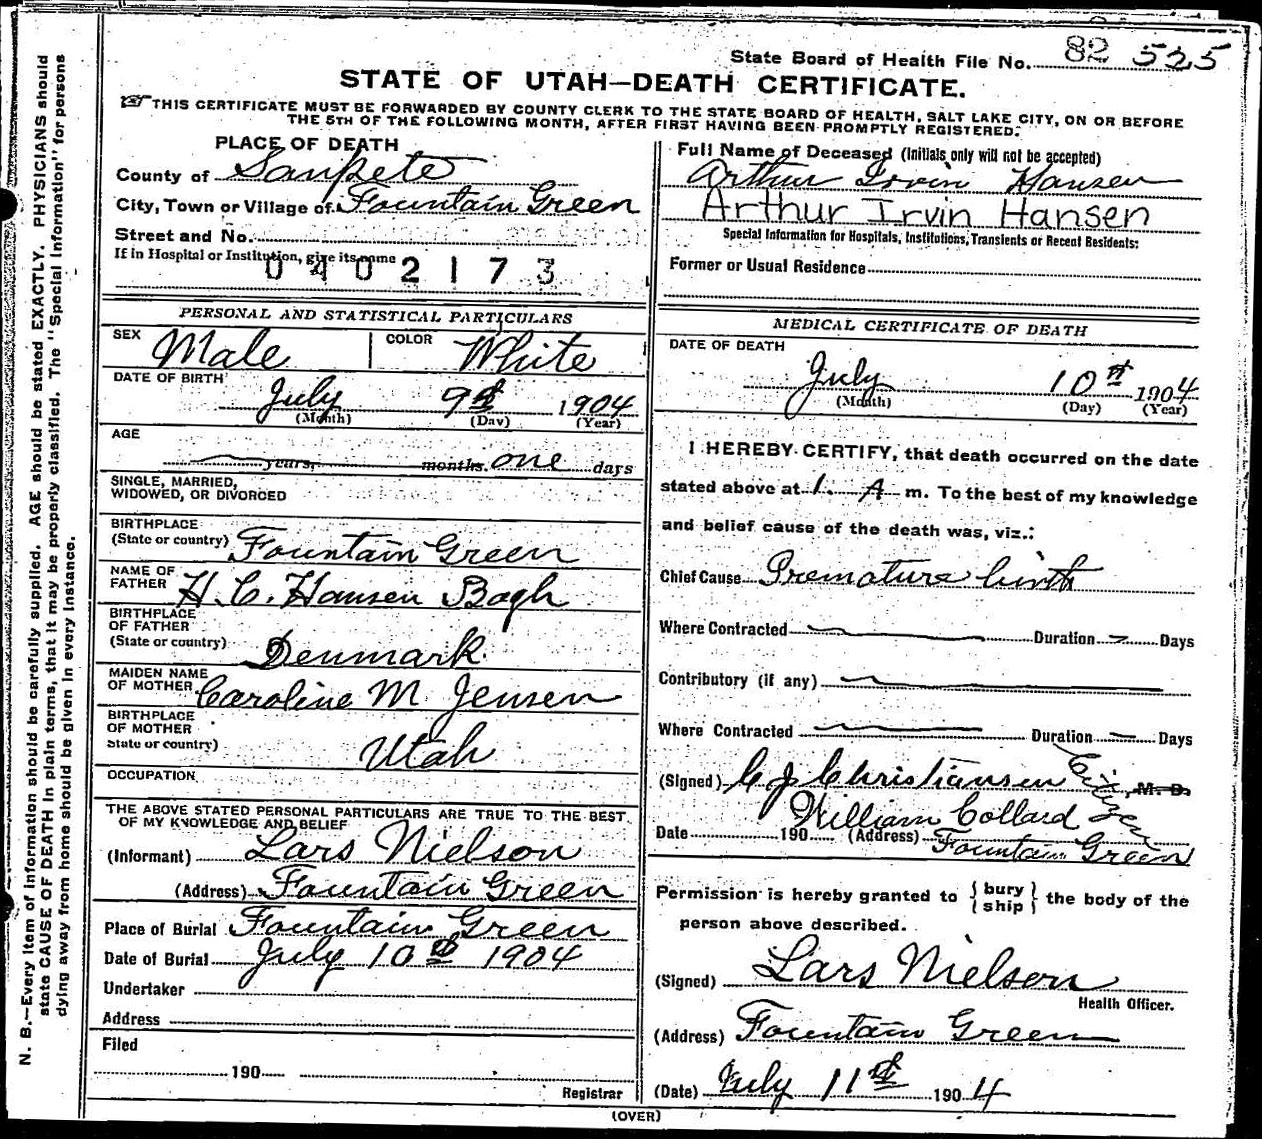 State Board of Health File No. 82 525
STATE OF UTAH—DEATH CERTIFICATE.
THIS CERTIFICATE MUST BE FORWARDED BY COUNTY CLERK TO THE STATE BOARD OF HEALTH, SALT LAKE CITY, ON OR BEFORE
THE 5TH OF THE FOLLOWING MONTH, AFTER FIRST HAVING BEEN PROMPTLY REGISTERED.
PLACE OF DEATH
County of Sanpete
City, Town or Village of Fountain Green
Street and No.
If in Hospital or Institution, give its name
0402173
PERSONAL AND STATISTICAL PARTICULARS
SEX Male COLOR White
DATE OF BIRTH
July 9th 1904
(Month) (Day) (Year)
AGE
years, months, one days
SINGLE, MARRIED,
WIDOWED, OR DIVORCED
BIRTHPLACE
(State or country) Fountain Green
NAME OF
FATHER H. C. Hansen Bogh
BIRTHPLACE
OF FATHER
(State or country) Denmark.
MAIDEN NAME
OF MOTHER Caroline M. Jensen
BIRTHPLACE
OF MOTHER
State or country) Utah
OCCUPATION
THE ABOVE STATED PERSONAL PARTICULARS ARE TRUE TO THE BEST
OF MY KNOWLEDGE AND BELIEF
(Informant) Lars Nielson
(Address) Fountain Green
Place of Burial Fountain Green
Date of Burial July 10th 1904
Undertaker
Address
Filed
190
Registrar
Full Name of Deceased (Initials only will not be accepted)
Arthur Irvin Hansen
Arthur Irvin Hansen
Special Information for Hospitals, Institutions, Transients or Recent Residents:
Former or Usual Residence
MEDICAL CERTIFICATE OF DEATH
DATE OF DEATH
July 10th 1904
(Month) (Day) (Year)
I HEREBY CERTIFY, that death occurred on the date
stated above at 1. A m. To the best of my knowledge
and belief cause of the death was, viz.:
Chief Cause Premature birth
Where Contracted Duration Days
Contributory (if any)
Where Contracted Duration Days
(Signed) C J Christiansen Citizen, M. D.
William Collard
Date 190 (Address) Fountain Green
Permission is hereby granted to {bury
ship} the body of the
person above described.
(Signed) Lars Nielson
Health Officer.
(Address) Fountain Green
(Date) July 11th 1904
(OVER)
N. B.—Every item of information should be carefully supplied. AGE should be stated EXACTLY. PHYSICIANS should
state CAUSE OF DEATH in plain terms, that it may be properly classified. The "Special Information" for persons
dying away from home should be given in every instance.